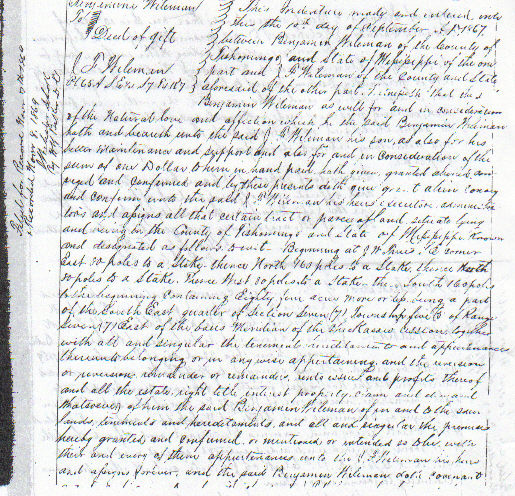 Benjamine Wileman } This Indenture made and entered into
To } this the 10th day of September A.D. 1867
Deed of gift } between Benjamin Wileman of the County of
} Tishomingo and State of Mississippi of the one
J. F. Wileman } part and J. F. Wileman of the County and State
} aforesaid of the other part. Witnesseth that the
Benjamin Wileman as well for and in consideration
of the Natural love and affection which he the said Benjamin Wileman
hath and beareth unto the said J. F. Wileman his son, as also for his
better maintenance and support and also for and in Consideration of the
sum of one Dollar to him in hand paid hath given granted aliened
and confirmed and by these presents doth give grant alien Convey
and confirm unto the said J. F. Wileman his heirs executors administra
tors and assigns all that certain tract or parcel of land, situate lying
and being in the County of Tishomingo and State of Mississippi Known
and designated as follows to wit. Beginning at J W 's Corner
East 80 poles to a Stake. thence North 160 poles to a Stake, thence
80 poles to a Stake. thence West 80 poles to a Stake. South 160 poles
to the beginning Containing Eighty acres more or less being a part
of the South East quarter of Section Seven (7) Township five (5) of Range
Seven (7) East of the basis Meridian of the Chickasaw Cession, together
with all and singular the tenements hereditaments and appurtenances
thereunto belonging or in any wise appertaining, and the reversion
or reversions remainder or remainders, rents issues and profits thereof
and all the estate, right title, interest property, claim and demand
whatsoever of him the said Benjamin Wileman of in and to the said
lands, tenements and hereditaments, and all and singular the premises
hereby granted and Confirmed, or mentioned or intended so to be, with
their and every of their appurtenances unto the J. F. Wileman his heirs
and assigns forever, and the said Benjamin Wileman doth covenant